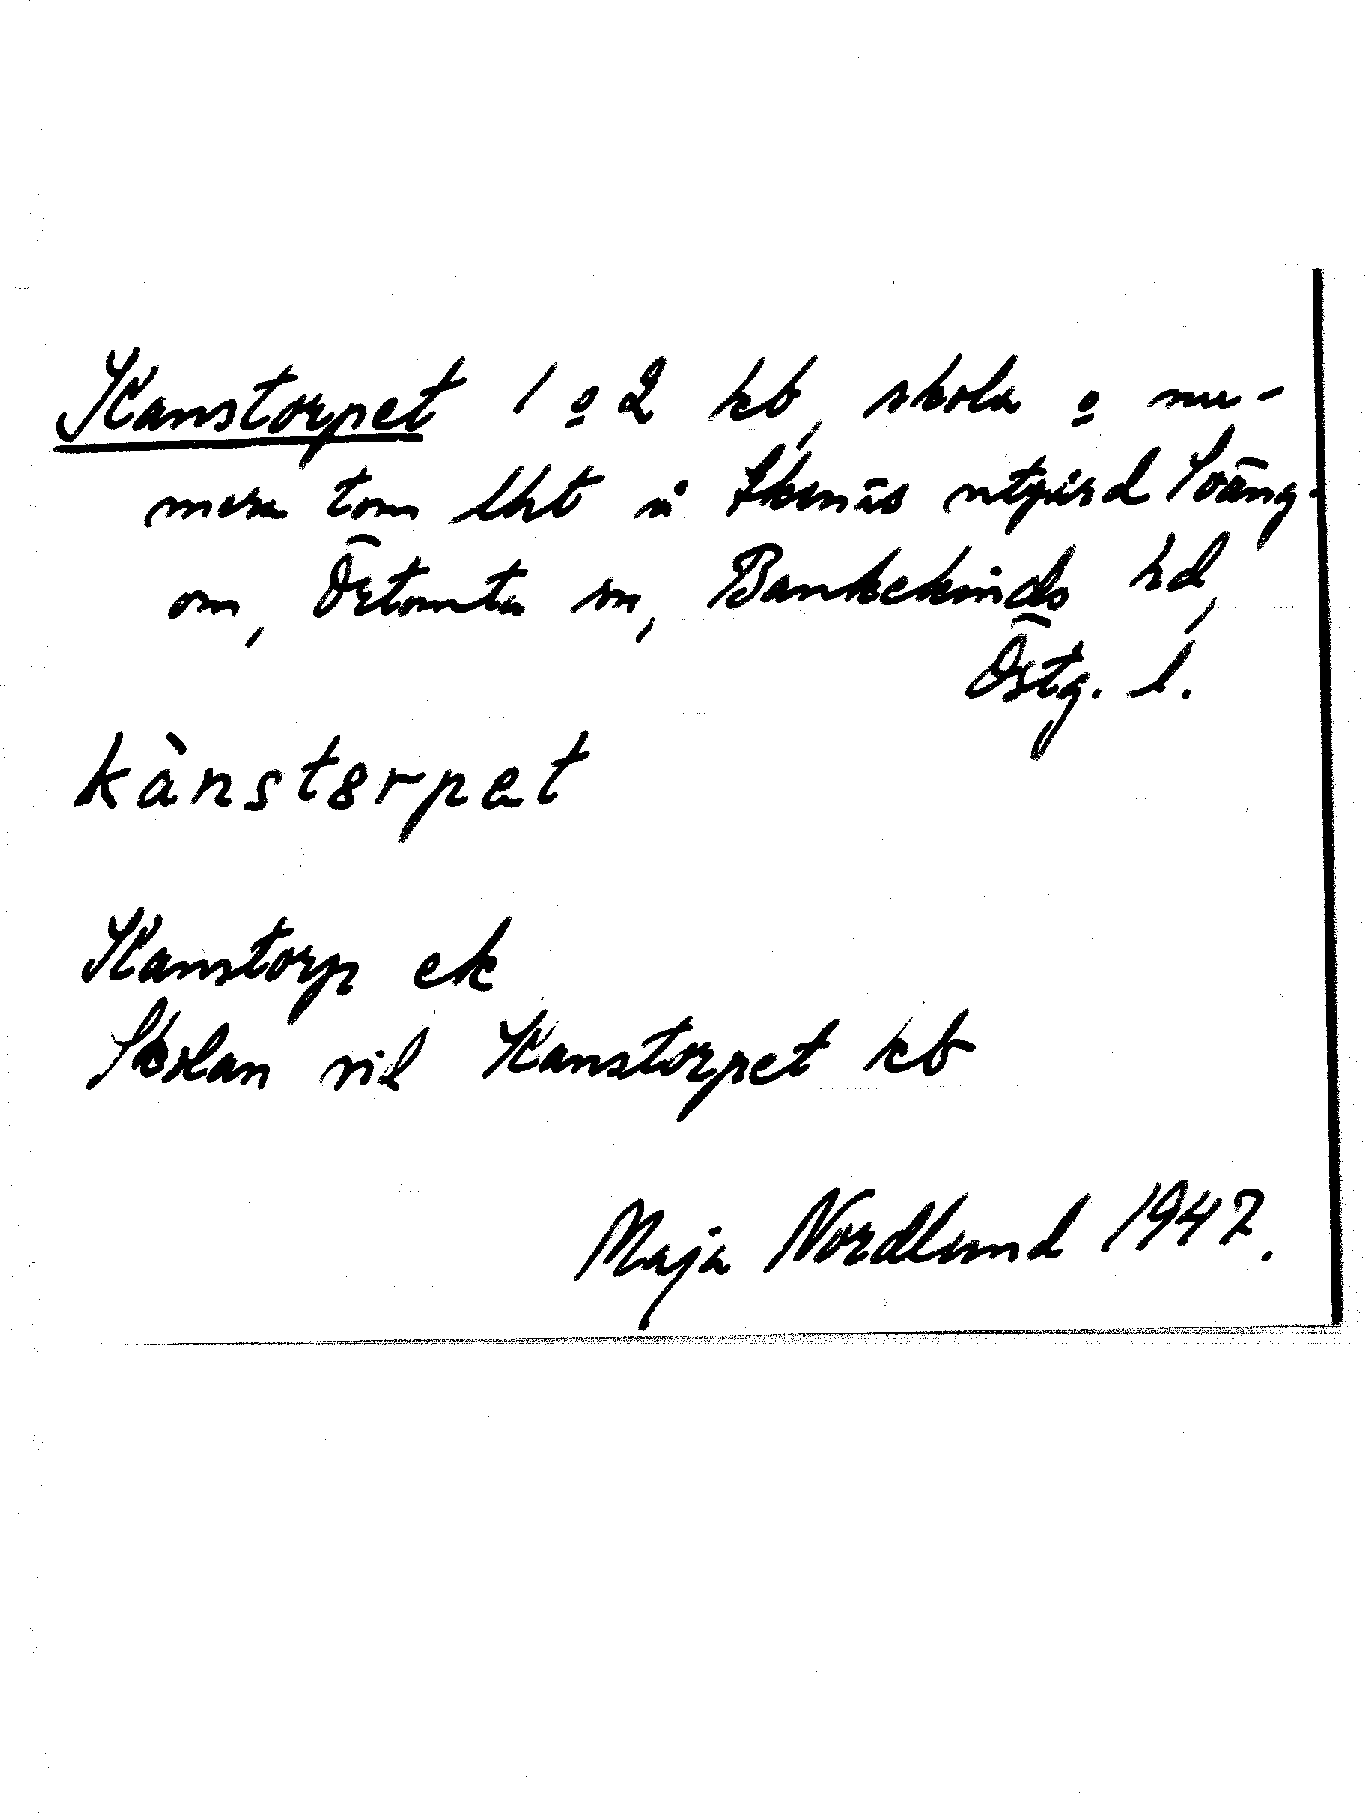 Kanstorpet 1 o 2 kb, skola o nu-
mera tom lht å Skenäs utgård Sväng-
om, Östomta sn, Bankekinds hd,
Östg. l.
kànstørpet
Kanstorp ek
Skolan vid Kanstorpet kb
Maja Nordlund 1947.